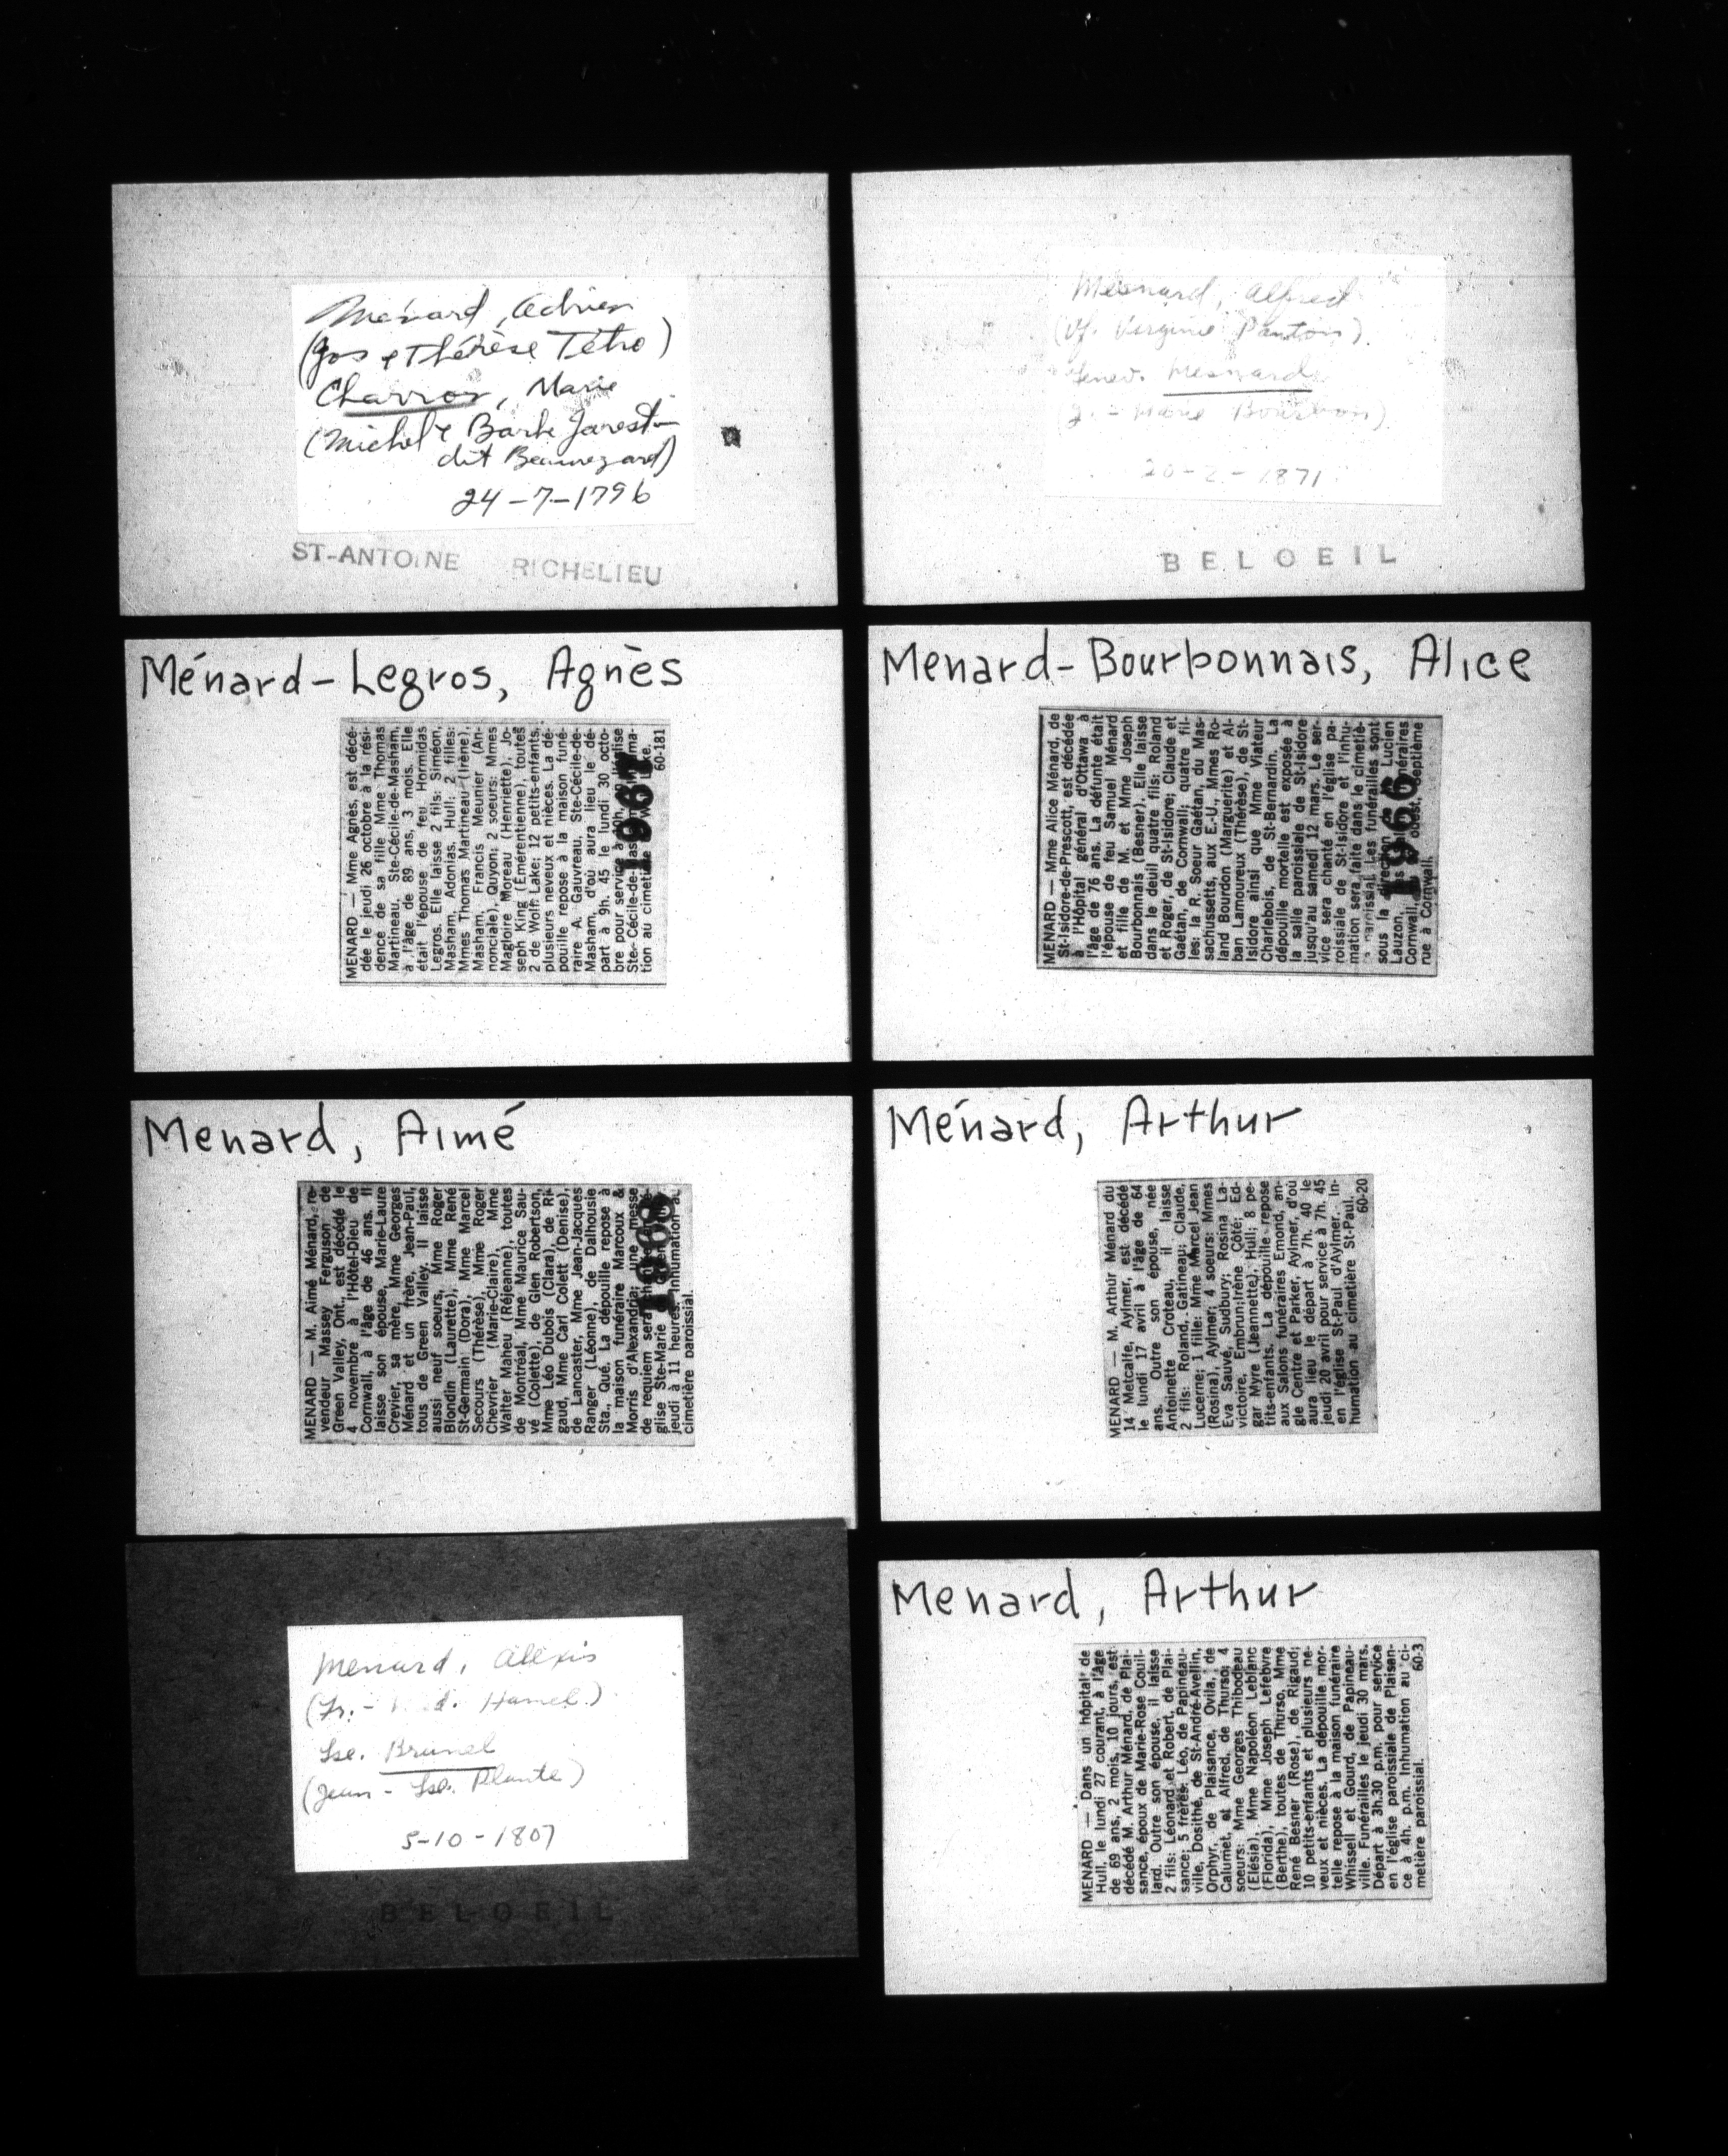 Ménard, Adrien
(Jos & Thérèse Tétro)
Charron, Marie
(Michel & Barbe Jarest
dit Beauregard)
24-7-1796
ST-ANTOINE RICHELIEU
Mesnard, Alfred
(Vf. Virginie Pantois).
Genev. Mesnard
Marie Bourbon).
20-2-1871
BELOEIL
Ménard-Legros, Agnès
MENARD — Mme Agnès, est décé-
dée le jeudi 26 octobre à la rési-
dence de sa fille Mme Thomas
Martineau, Ste-Cécile-de-Masham,
à l'âge de 89 ans, 3 mois. Elle
était l'épouse de feu Hormidas
Legros. Elle laisse 2 fils: Siméon,
Masham, Adonias, Hull; 2 filles:
Mmes Thomas Martineau (Irène),
Masham, Francis Meunier (An-
nonciale), Quyon; 2 soeurs: Mmes
Magloire Moreau (Henriette), Jo-
seph King (Émérentienne), toutes
2 de Wolf Lake; 12 petits-enfants,
plusieurs neveux et nièces. La dé-
pouille repose à la maison funé-
raire A. Gauvreau, Ste-Cécile-de-
Masham, d'où aura lieu le dé-
part à 9h. 45 le lundi 30 octo-
bre pour service à 10h. église
Ste-Cécile-de-Masham.
tion au cimetière Lake.
60-181
1967
Menard-Bourbonnais, Alice
MENARD — Mme Alice Ménard, de
St-Isidore-de-Prescott, est décédée
à l'Hôpital général d'Ottawa à
l'âge de 76 ans. La défunte était
l'épouse de feu Samuel Ménard
et fille de M. et Mme Joseph
Bourbonnais (Besner). Elle laisse
dans le deuil quatre fils: Roland
et Roger, de St-Isidore; Claude et
Gaétan, de Cornwall; quatre fil-
les: la R. Soeur Gaétan, du Mas-
sachussetts, aux E.-U., Mmes Ro-
land Bourdon (Marguerite) et Al-
ban Lamoureux (Thérèse), de St-
Isidore ainsi que Mme Viateur
Charlebois, de St-Bernardin. La
dépouille mortelle est exposée à
la salle paroissiale de St-Isidore
jusqu'au samedi 12 mars. Le ser-
vice sera chanté en l'église pa-
roissiale de St-Isidore et l'inhu-
mation sera faite dans le cimetiè-
paroissial. Les funérailles sont
sous la direction de Lucien
Lauzon, funéraires
Cornwall, ouest, septième
rue à Cornwall.
1966
Menard, Aimé
MENARD — M. Aimé Ménard, re-
vendeur Massey Ferguson de
Green Valley, Ont., est décédé le
4 novembre à l'Hôtel-Dieu de
Cornwall, à l'âge de 46 ans. Il
laisse son épouse, Marie-Laure
Crevier, sa mère, Mme Georges
Ménard et un frère, Jean-Paul,
tous de Green Valley. Il laisse
aussi neuf soeurs, Mme Roger
Blondin (Laurette), Mme René
St-Germain (Dora), Mme Marcel
Secours (Thérèse), Mme Roger
Chevrier (Marie-Claire), Mme
Walter Maheu (Réjeanne), toutes
de Montréal, Mme Maurice Sau-
vé (Colette), de Glen Robertson,
Mme Léo Dubois (Clara), de Ri-
gaud, Mme Carl Colett (Denise),
de Lancaster, Mme Jean-Jacques
Ranger (Léonne), de Dalhousie
Sta., Qué. La dépouille repose à
la maison funéraire Marcoux &
Morris d'Alexandria; une messe
de requiem sera
glise Ste-Marie
jeudi à 11 heures. Inhumation au
cimetière paroissial.
Ménard, Arthur
MENARD — M. Arthur Ménard du
14 Metcalfe, Aylmer, est décédé
le lundi 17 avril à l'âge de 64
ans. Outre son épouse, née
Antoinette Croteau, il laisse
2 fils: Roland, Gatineau; Claude,
Lucerne; 1 fille: Mme Marcel Jean
(Rosina), Aylmer; 4 soeurs: Mmes
Eva Sauvé, Sudbury; Rosina La-
victoire, Embrun; Irène Côté; Ed-
gar Myre (Jeannette), Hull; 8 pe-
tits-enfants. La dépouille repose
aux Salons funéraires Emond, an-
gle Centre et Parker, Aylmer, d'où
aura lieu le départ à 7h. 40 le
jeudi 20 avril pour service à 7h. 45
en l'église St-Paul d'Aylmer. In-
humation au cimetière St-Paul.
60-20
Menard, Alexis
(Fr. - Hamel.)
Lse. Brunel
(Jean - Lse. Plante)
5-10-1807
BELOEIL
Menard, Arthur
MENARD — Dans un hôpital de
Hull, le lundi 27 courant, à l'âge
de 69 ans, 2 mois, 10 jours, est
décédé M. Arthur Ménard, de Plai-
sance, époux de Marie-Rose Couil-
lard. Outre son épouse, il laisse
2 fils: Léonard et Robert, de Plai-
sance; 5 frères: Léo, de Papineau-
ville, Dosithé, de St-André-Avellin,
Orphyr, de Plaisance, Ovila, de
Calumet, et Alfred, de Thurso; 4
soeurs: Mme Georges Thibodeau
(Elésia), Mme Napoléon Leblanc
(Florida), Mme Joseph Lefebvre
(Berthe), toutes de Thurso, Mme
René Besner (Rose), de Rigaud;
10 petits-enfants et plusieurs ne-
veux et nièces. La dépouille mor-
telle repose à la maison funéraire
Whissell et Gourd, de Papineau-
ville. Funérailles le jeudi 30 mars.
Départ à 3h.30 p.m. pour service
en l'église paroissiale de Plaisan-
ce à 4h. p.m. Inhumation au ci-
metière paroissial.
60-3